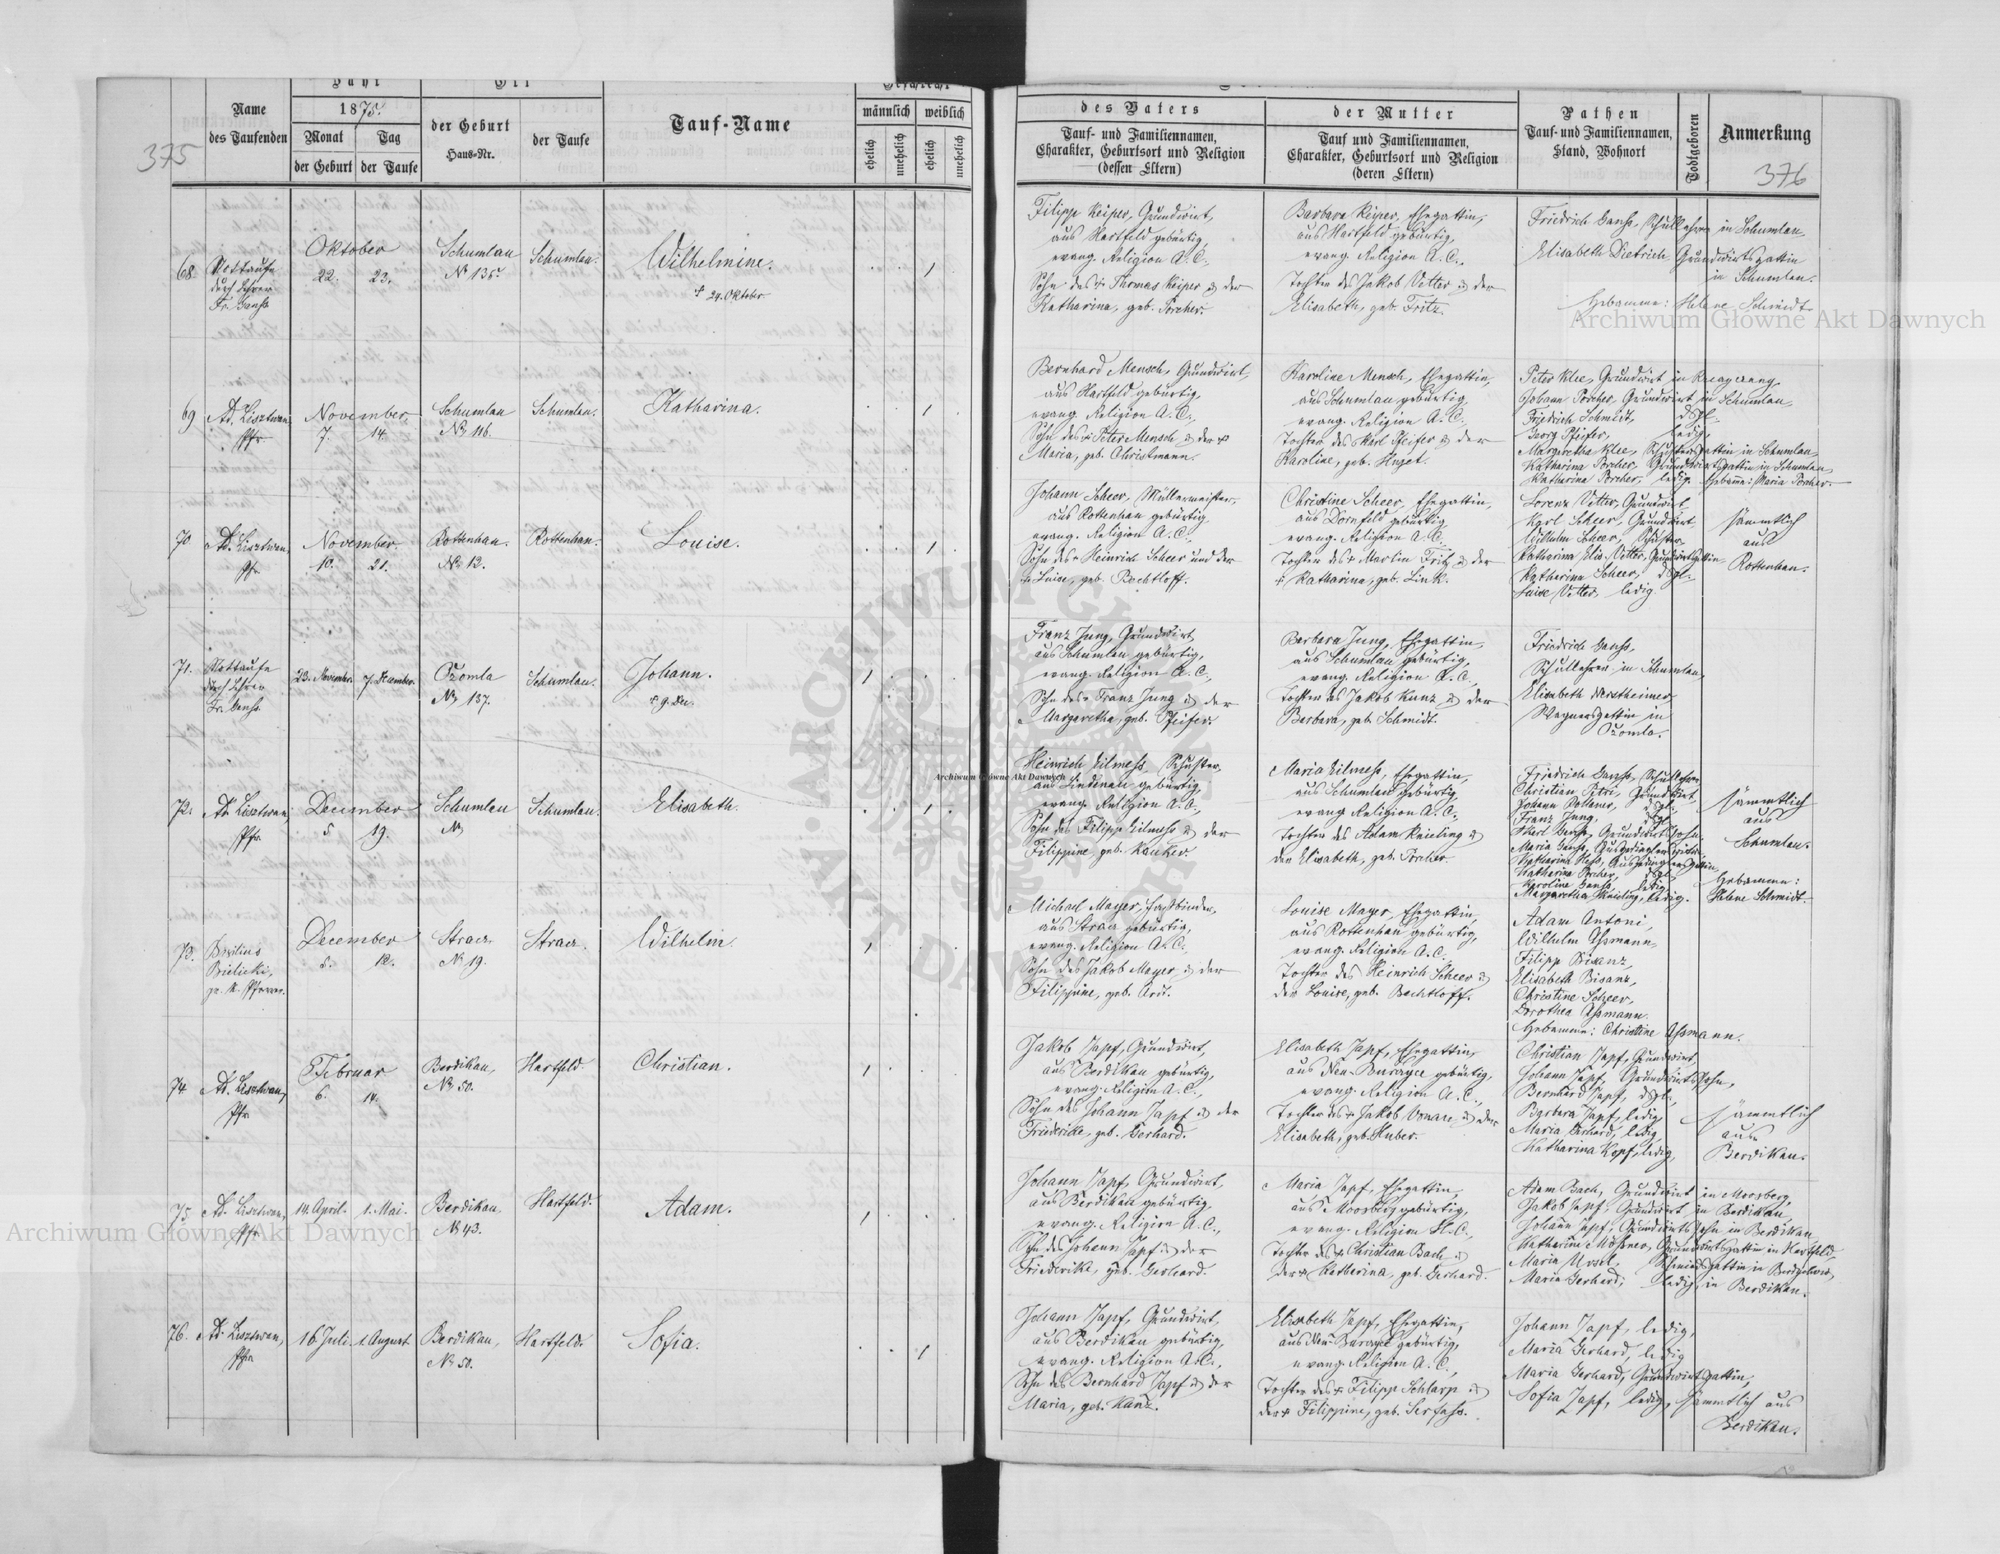 375
Name
des Taufenden
Jahr
1875.
Monat
Tag
der Geburt
der Taufe
Ort
der Geburt
Haus-Nr.
der Taufe
Tauf-Name
Geschlecht
männlich
weiblich
ehelich
unehelich
ehelich
unehelich
des Vaters
Tauf- und Familiennamen,
Charakter, Geburtsort und Religion
(dessen Eltern)
der Mutter
Tauf und Familiennamen,
Charakter, Geburtsort und Religion
(deren Eltern)
Pathen
Tauf- und Familiennamen,
Stand, Wohnort
Todtgeboren
Anmerkung
376
68
Nottaufe
durch Lehrer
Fr. Ganss
Oktober
22. 23.
Schumlau
No 135.
Schumlau.
Wilhelmine.
† 24. Oktober
1
Filipp Keiper, Grundwirt,
aus Hartfeld gebürtig,
evang. Religion A. C.,
Sohn des † Thomas Keiper u der
Katharina, geb. Porcher.
Barbara Keiper, Ehegattin,
aus Hartfeld gebürtig,
evang. Religion A. C.,
Tochter des Jakob Vetter u der
Elisabeth, geb. Fritz.
Friedrich Ganss, Schullehrer in Schumlau,
Elisabeth Dietrich Grundwirtsgattin
in Schumlau.
Hebamme: Helene Schmidt
69
Ad. Lisztwan,
Pfr
November,
7. 14.
Schumlau
No 116.
Schumlau.
Katharina.
1
Bernhard Mensch, Grundwirt,
aus Hartfeld gebürtig,
evang. Religion A. C.,
Sohn des † Peter Mensch u der †
Maria, geb. Christmann.
Karoline Mensch, Ehegattin,
aus Schumlau gebürtig,
evang. Religion A. C.,
Tochter des Karl Pfeifer u der
Karoline, geb. Huget.
Peter Klee, Grundwirt in
Johann Porcher, Grundwirt in Schumlau,
Friedrich Schmidt, dsgl.
Georg Pfeifer, ledig,
Margaretha Klee, Schustersgattin in Schumlau
Katharina Porcher, Grundwirtsgattin in Schumlau
Katharina Porcher, ledig. Hebamme: Maria Porcher.
70
Ad. Lisztwan,
Pfr
November
10. 21.
Rottenhan.
No 12.
Rottenhan.
Louise.
1
Johann Scheer, Müllermeister,
aus Rottenhan gebürtig,
evang. Religion A. C.,
Sohn des † Heinrich Scheer und der
† Luise, geb. Bechtloff.
Christine Scheer, Ehegattin,
aus Dornfeld gebürtig,
evang. Religion A. C.,
Tochter des † Martin Fritz u der
† Katharina, geb. Link.
Lorenz Vetter, Grundwirt
Karl Scheer, Grundwirt,
Wilhelm Scheer, Schuster,
Katharina Elis. Vetter, Grundwirtsgattin
Katharina Scheer, dsgl.
Luise Vetter, ledig.
sämmtlich
aus
Rottenhan.
71.
Nottaufe
durch Lehrer
Fr. Ganss.
23. November. 7. December.
Ozomla
No 137.
Schumlau.
Johann.
† 9. Dec.
1
Franz Jung, Grundwirt,
aus Schumlau gebürtig,
evang. Religion A. C.,
Sohn des Franz Jung u der
Margaretha, geb. Pfeifer.
Barbara Jung, Ehegattin,
aus Schumlau gebürtig,
evang. Religion A. C.,
Tochter des Jakob Kunz u der
Barbara, geb. Schmidt.
Friedrich Ganss,
Schullehrer in Schumlau,
Elisabeth
Wagnersgattin in
Ozomla.
72.
Ad. Lisztwan,
Pfr.
December
5 19.
Schumlau
No
Schumlau.
Elisabeth.
1
Heinrich Dilmess, Schuster,
aus Lindenau gebürtig,
evang. Religion A. C.,
Sohn des Filipp Dilmess u der
Filippine, geb. Kauker.
Maria Dilmess, Ehegattin,
aus Schumlau gebürtig,
evang. Religion A. C.,
Tochter des Adam Kneling u
der Elisabeth, geb. Porcher.
Friedrich Ganss, Schullehrer
Christian Petri, Grundwirt
Johann dsgl.
Franz Jung, dsgl.
Karl Ganss, Grundwirtssohn
Maria Ganss,
Katharina Hess,
Katharina Porcher, dsgl.
Karoline Ganss, ledig
Margaretha Kneling, ledig.
sämmtlich
aus
Schumlau.
Hebamme:
Helene Schmidt.
73.
Basilius
Bielicki,
gr. k. Pfarrer.
December
5. 12.
Stracz.
No 19.
Stracz.
Wilhelm.
1
Michael Mayer, Fassbinder,
aus Stracz gebürtig,
evang. Religion A. C.,
Sohn des Jakob Mayer, u der
Filippine, geb. Arit.
Louise Mayer, Ehegattin,
aus Rottenhan gebürtig,
evang. Religion A. C.,
Tochter des Heinrich Scheer u
der Louise, geb. Bechtloff.
Adam Antoni,
Wilhelm Assmann,
Filipp Bisanz,
Elisabeth Bisanz,
Christine Scheer,
Dorothea Assmann.
Hebamme: Christine Assmann.
74
Ad. Lisztwan,
Pfr
Februar
6. 14.
Berdikau,
No 50.
Hartfeld.
Christian.
1
Jakob Japf, Grundwirt,
aus Berdikau gebürtig,
evang. Religion A. C.,
Sohn des Johann Japf u der
Friedericke, geb. Gerhard.
Elisabeth Japf, Ehegattin,
aus Neu-Burczyce gebürtig,
evang. Religion A. C.,
Tochter des † Jakob u der
Elisabeth, geb. Huber.
Christian Japf, Grundwirt,
Johann Japf, Grundwirtssohn,
Bernhard Japf, dsgl.,
Barbara Japf, ledig,
Maria Gerhard, ledig
Katharina Kopf, ledig,
sämmtlich
aus
Berdikau.
75
Ad. Lisztwan,
Pfr
14. April. 1. Mai.
Berdikau,
No 43.
Hartfeld.
Adam.
1
Johann Japf, Grundwirt,
aus Berdikau gebürtig
evang. Religion A. C.,
Sohn des Johann Japf u der
Friederike, geb. Gerhard.
Maria Japf, Ehegattin,
aus Moosberg gebürtig,
evang. Religion H. C.,
Tochter des † Christian Bach u
der † Katharina, geb. Gerhard.
Adam Bach, Grundwirt in Moosberg,
Jakob Japf, Grundwirt in Berdikau,
Johann Japf, Grundwirtssohn in Berdikau
Katharina Mössner, Grundwirtsgattin in Hartfeld
Maria
Maria Gerhard, ledig, in Berdikau.
76.
Ad. Lisztwan,
Pfr
16 Juli. 1. August.
Berdikau,
No 50.
Hartfeld.
Sofia.
1
Johann Japf, Grundwirt,
aus Berdikau gebürtig,
evang. Religion A. C.,
Sohn des Bernhard Japf u der
Maria, geb. Kunz.
Elisabeth Japf, Ehegattin,
aus Neu-Burczyce gebürtig,
evang. Religion A. C.,
Tochter des † Filipp Schlarp u
der † Filippine, geb. Serfass.
Johann Japf, ledig,
Maria Gerhard, ledig
Maria Gerhard, Grundwirtsgattin,
Sofia Japf, ledig, sämmtlich aus
Berdikau.
Archiwum Główne Akt Dawnych
Archiwum Główne Akt Dawnych
Archiwum Główne Akt Dawnych